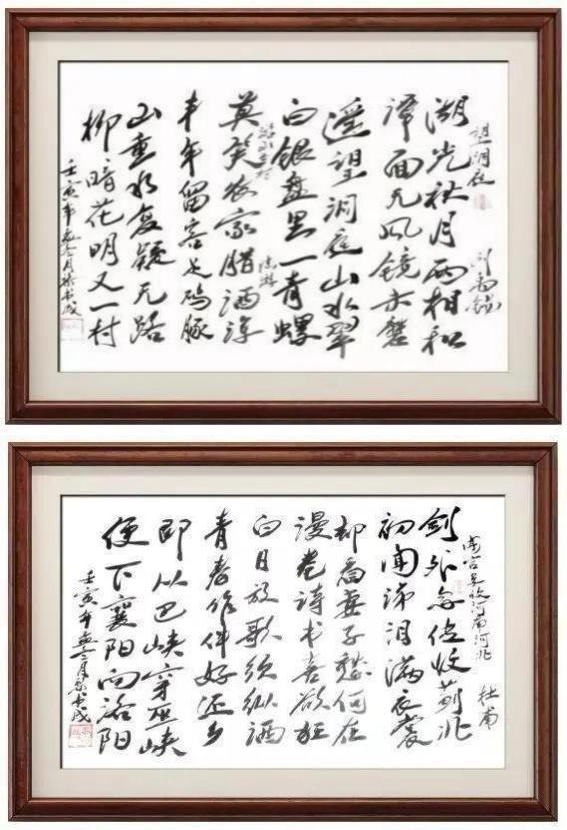 望洞庭 刘禹锡
湖光秋月两相和
潭面无风镜未磨
遥望洞庭山水翠
白银盘里一青螺
游山西村 陆游
莫笑农家腊酒浑
丰年留客足鸡豚
山重水复疑无路
柳暗花明又一村
壬寅年 月 书成
闻官军收河南河北 杜甫
剑外忽传收蓟北
初闻涕泪满衣裳
却看妻子愁何在
漫卷诗书喜欲狂
白日放歌须纵酒
青春作伴好还乡
即从巴峡穿巫峡
便下襄阳向洛阳
壬寅年 月 书成